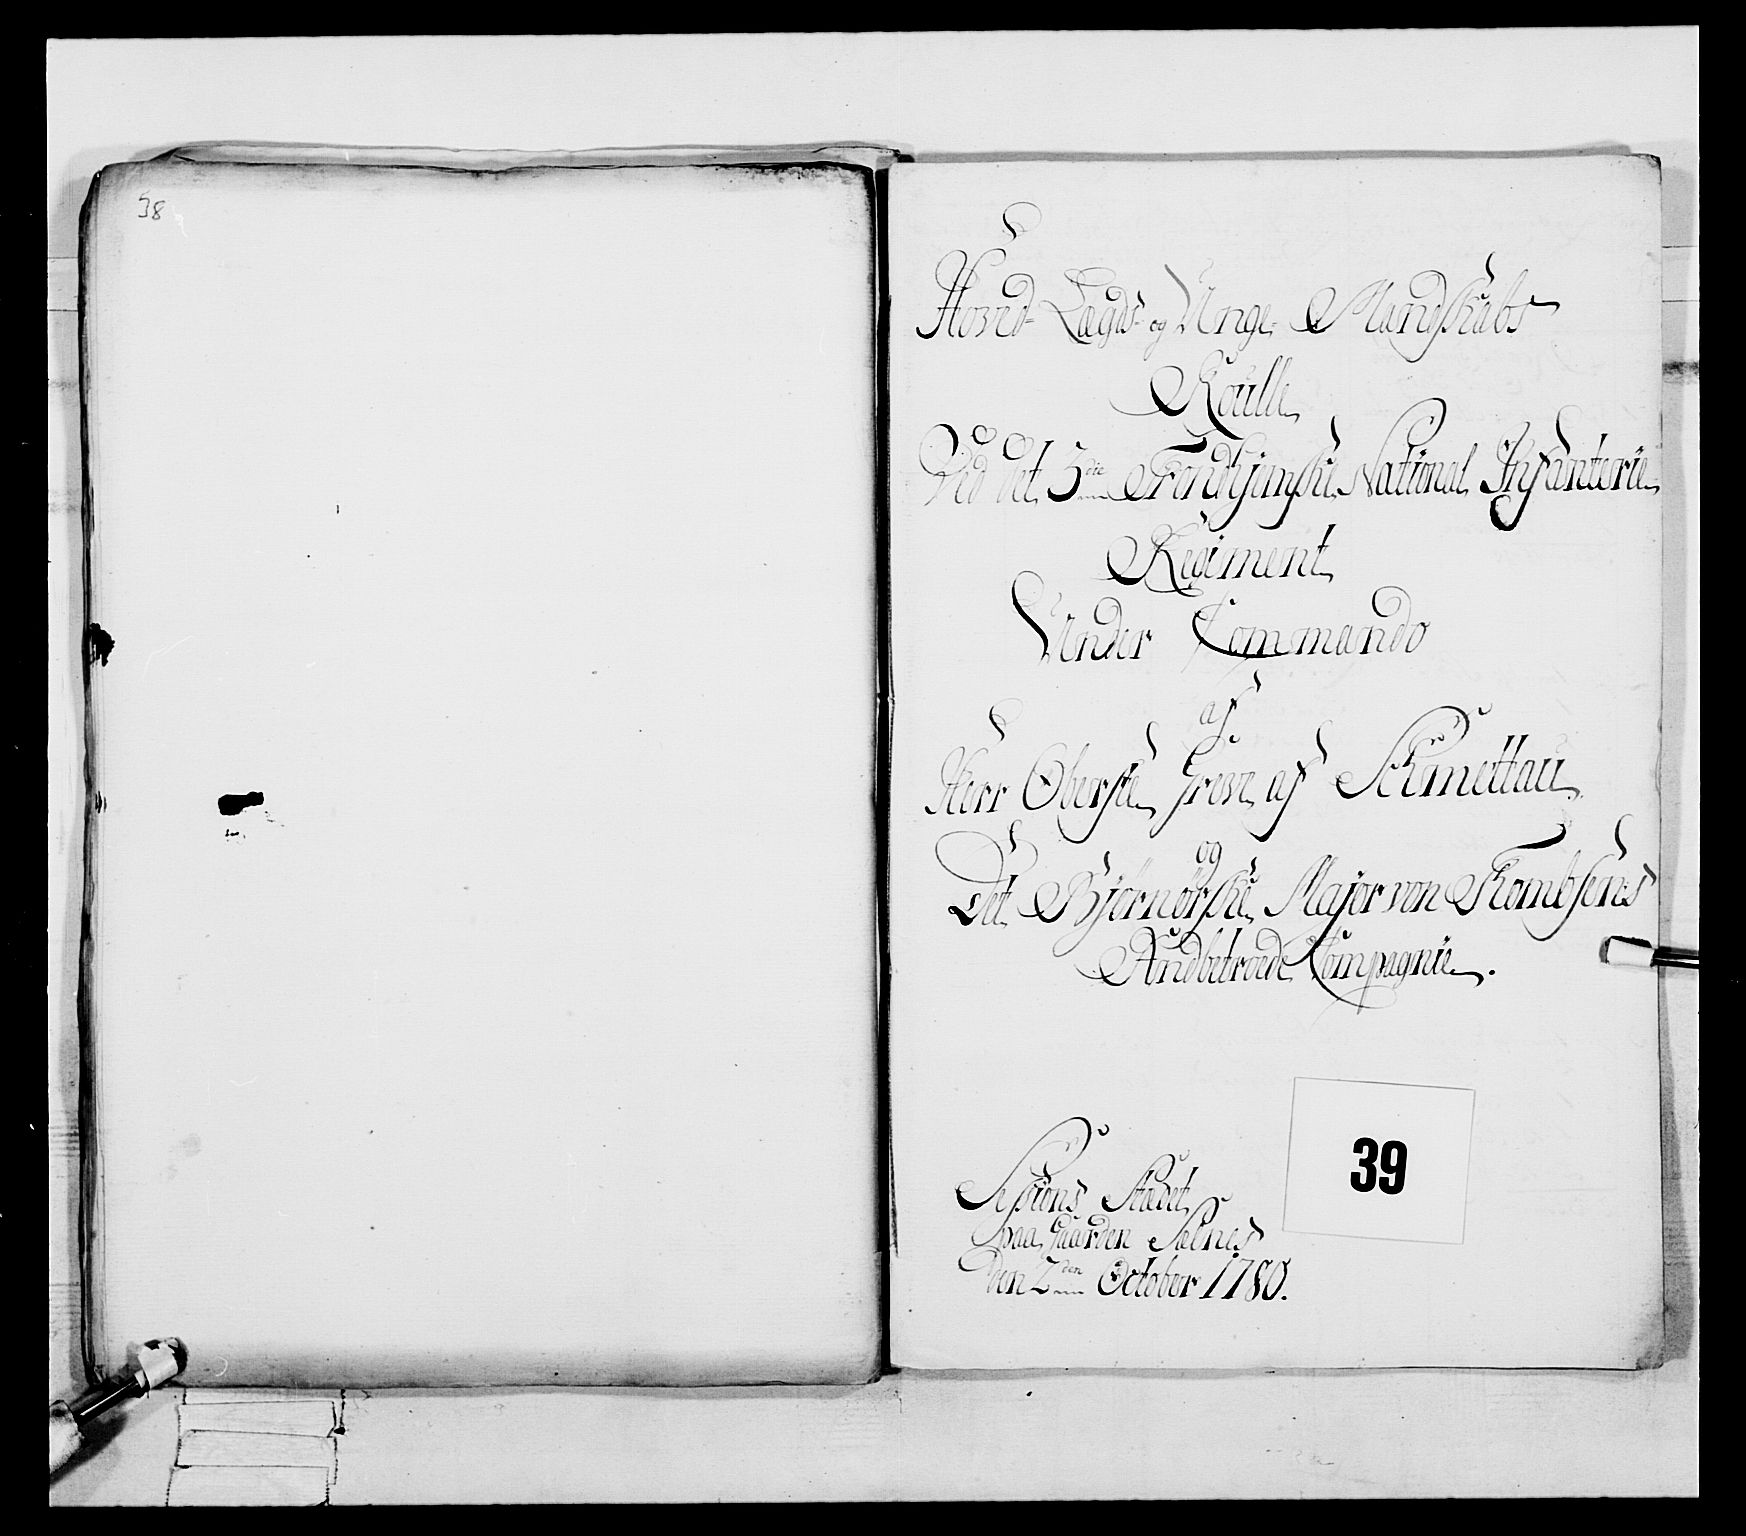 38
Hoved- Lægds- og Unge- Mandskabs
Roulle
Ved det 3die Trondhjemske National Infanterie
Regiment
Under Commando
af
Herr Oberste Greve af Schmettau
og
Det Bjørnørske Major von
Andbetroede Compagnie.
39
Sessions Stædet
paa Gaarden Sælnes
den 2den October 1780.